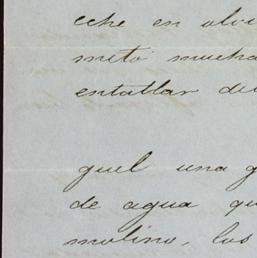 eche en olvi
mito mucha
entallar de
guel una g
de agua qu
molino, los